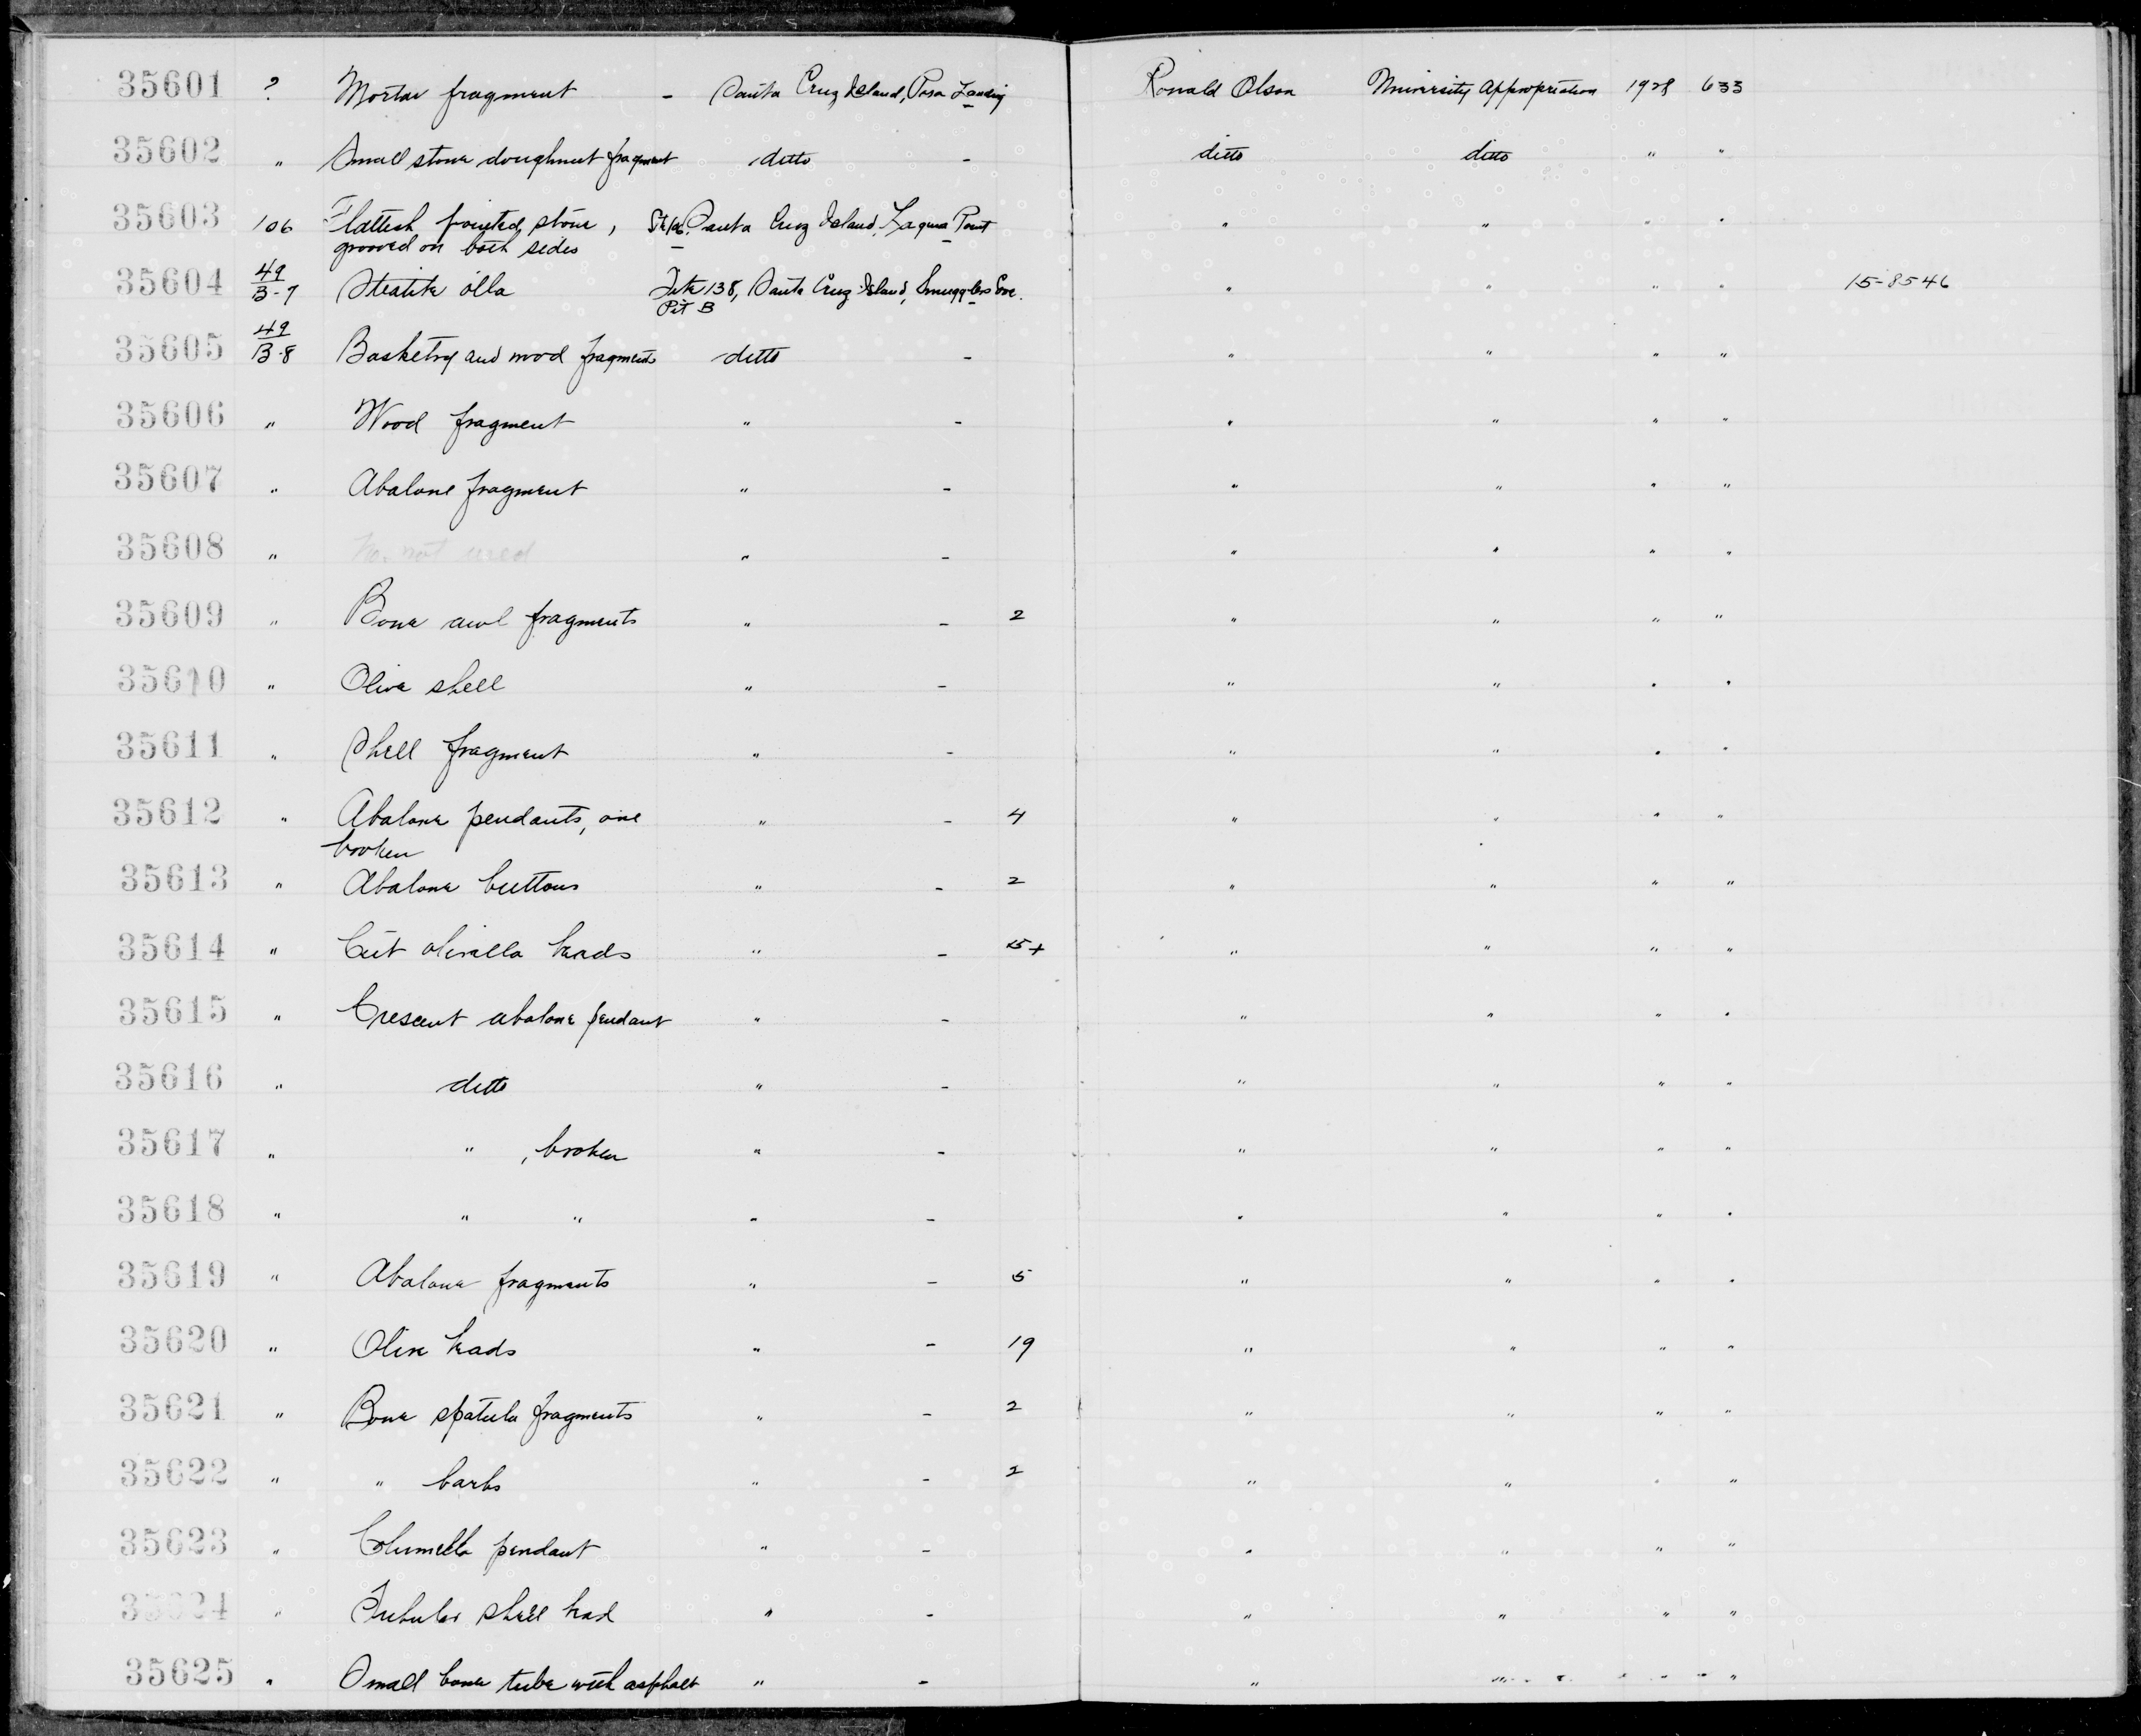 35601 ? Mortar fragment - Santa Cruz Island, Posa Landing Ronald Olson University Appropriation 1928 633
35602 " Small stone doughnut fragment ditto - ditto ditto " "
35603 106 Flattish pointed stone, Site 106, Santa Cruz Island, Laguna Point " " " "
grooved on both sides
35604 49/B-7 Steatite olla Site 138, Santa Cruz Island, Smugglers Cove. " " " " 15-8546
Pit B
35605 49/B-8 Basketry and wood fragments ditto - " " " "
35606 " Wood fragment " - " " " "
35607 " Abalone fragment " - " " " "
35608 " No. not used " - " " " "
35609 " Bone awl fragments " - 2 " " " "
35610 " Olive shell " - " " " "
35611 " Shell fragment " - " " " "
35612 " Abalone pendants, one " - 4 " " " "
broken
35613 " Abalone buttons " - 2 " " " "
35614 " Cut olivella beads " - 15+ " " " "
35615 " Crescent abalone pendant " - " " " "
35616 " ditto " - " " " "
35617 " " , broken " - " " " "
35618 " " " " - " " " "
35619 " Abalone fragments " - 5 " " " "
35620 " Olive beads " - 19 " " " "
35621 " Bone spatula fragments " - 2 " " " "
35622 " " barbs " - 2 " " " "
35623 " Columella pendant " - " " " "
35624 " Tubular shell bead " - " " " "
35625 " Small bone tube with asphalt " - " " " "